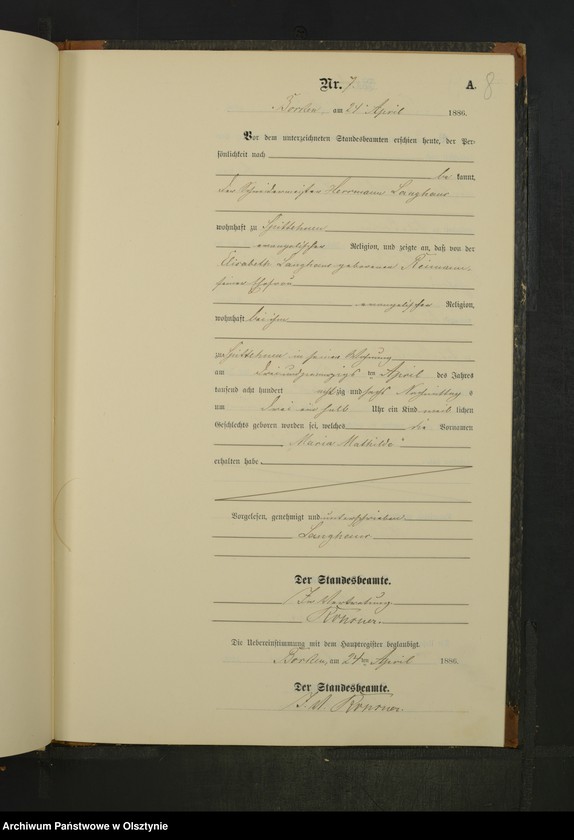 Nr. 7. A. 8
am 24 April 1886.
Vor dem unterzeichneten Standesbeamten erschien heute, der Per-
sönlichkeit nach
be kannt,
der Schneidermeister Herrmann Langhans
wohnhaft zu Spittehnen
evangelischer Religion, und zeigte an, daß von der
Elisabeth Langhans geborenen
seiner Ehefrau
evangelischer Religion,
wohnhaft bei ihm
zu Spittehnen in seiner Wohnung
am dreiundzwanzigsten April des Jahres
tausend acht hundert achtzig und sechs Nachmittags
um drei ein halb Uhr ein Kind weiblichen
Geschlechts geboren worden sei, welches die Vornamen
Maria Mathilde
erhalten habe.
Vorgelesen, genehmigt und unterschrieben
Langhans
Der Standesbeamte.
In Vertretung
Die Uebereinstimmung mit dem Hauptregister beglaubigt.
am 24ten April 1886.
Der Standesbeamte.
I. V.
Archiwum Państwowe w Olsztynie